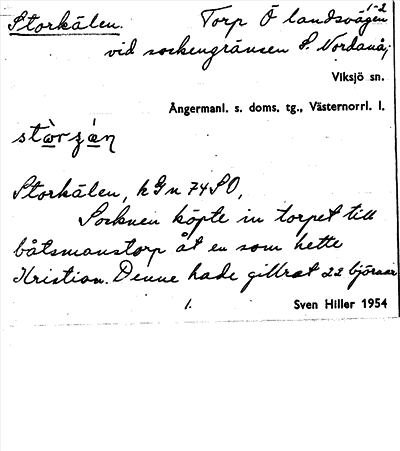 1-2
Storkälen. Torp Ö landsvägen
vid sockengränsen S. Nordanåj
Viksjö sn.
Ångermanl. s. doms. tg., Västernorrl. l.
Storkälen, k G n 74 SO,
Socknen köpte in torpet till
båtsmanstorp åt en som hette
Kristian. Denne hade gillrat 22 björnar
1. Sven Hiller 1954